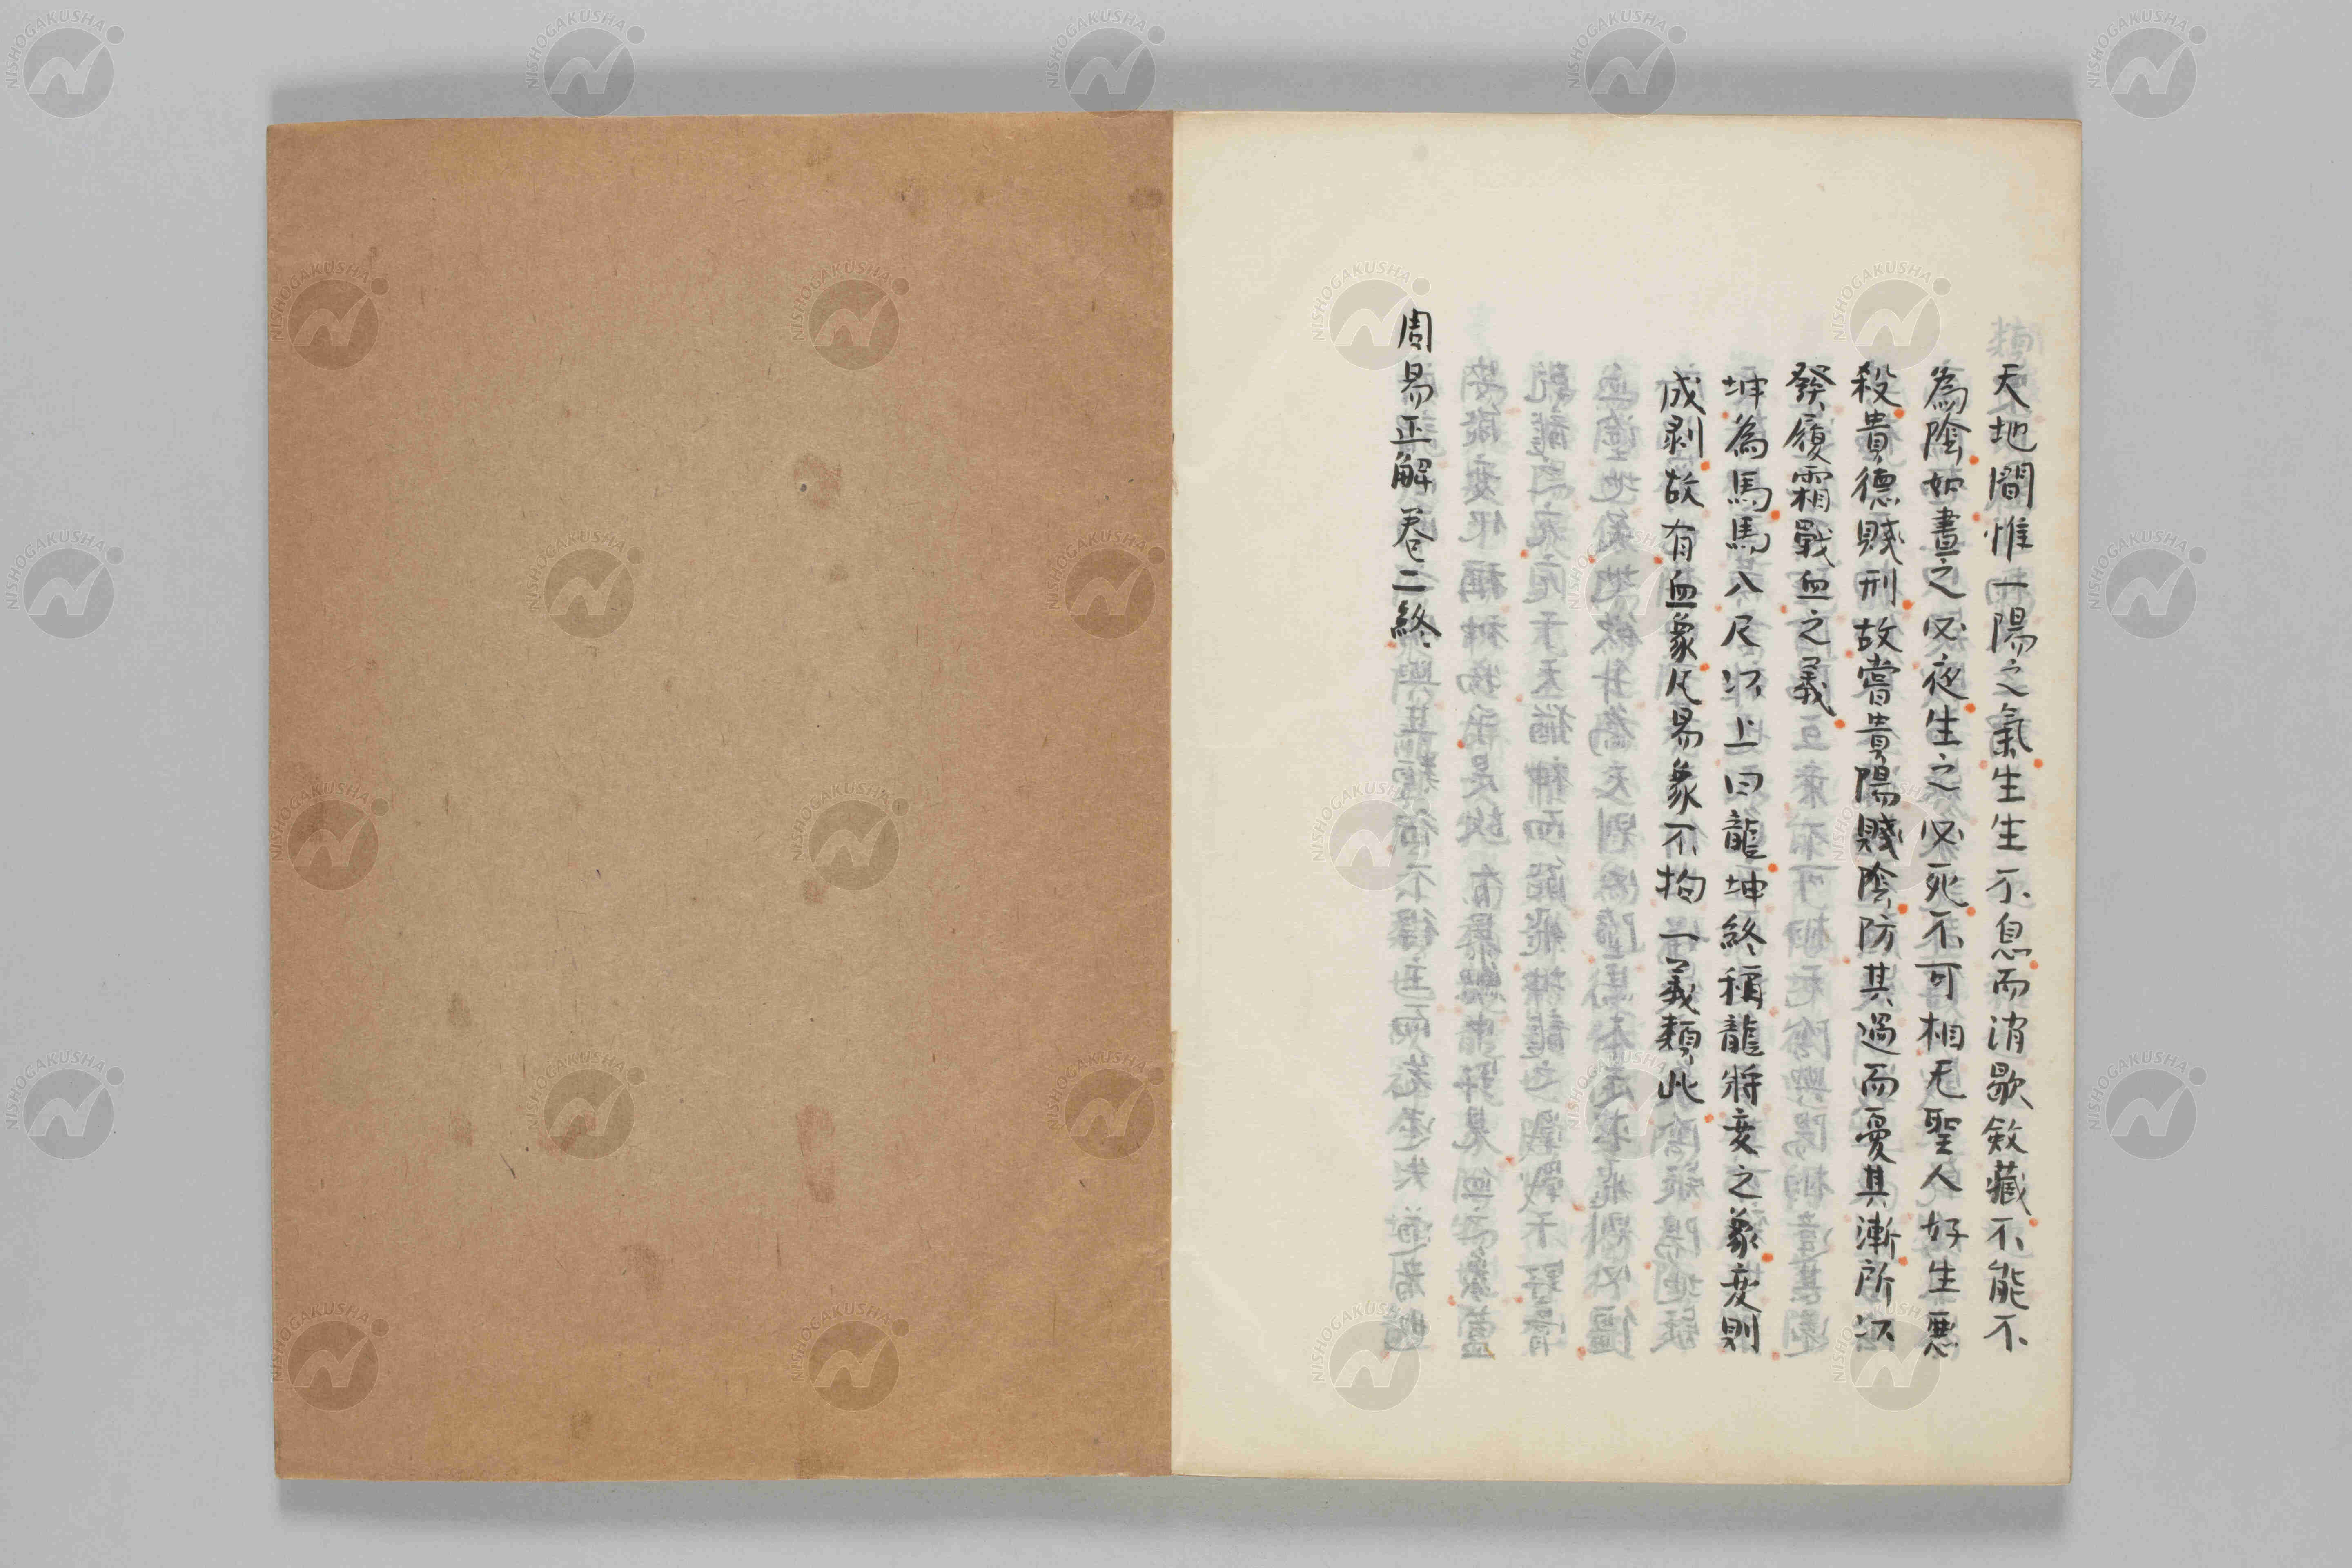 天地間惟一陽之氣生生不息而消歇斂藏不能不
為陰如晝之必夜生之必死不可相无聖人好生惡
殺貴德賤刑故嘗貴陽賤陰防其過而憂其漸所以
發履霜戰血之義
坤為馬馬八尺以上曰龍坤終稱龍將変之象変則
成剥故有血象凡易象不拘一義類此
周易正解卷二終
NISHOGAKUSHA